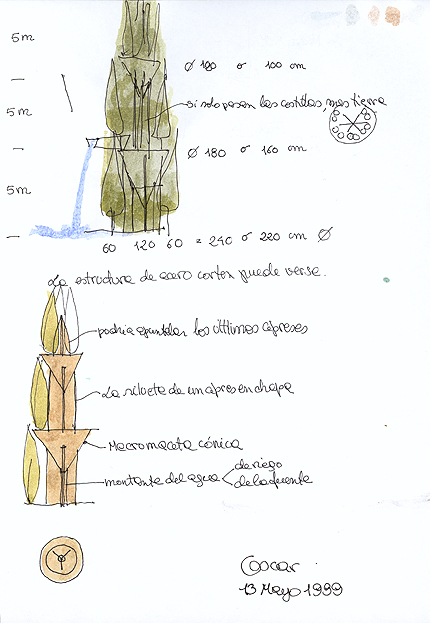 5m
Ø 120 o 100 cm
si solo pasan las costillas, mas tierra
5m
Ø 180 o 160 cm
5m
60 120 60 = 240 o 220 cm Ø
La estructura de acero corten puede verse.
podria apuntalar los últimos cipreses
La silueta de un cipres en chapa
Macromaceta cónica
montante del agua < de riego
de la fuente
Oscar
13 Mayo 1999